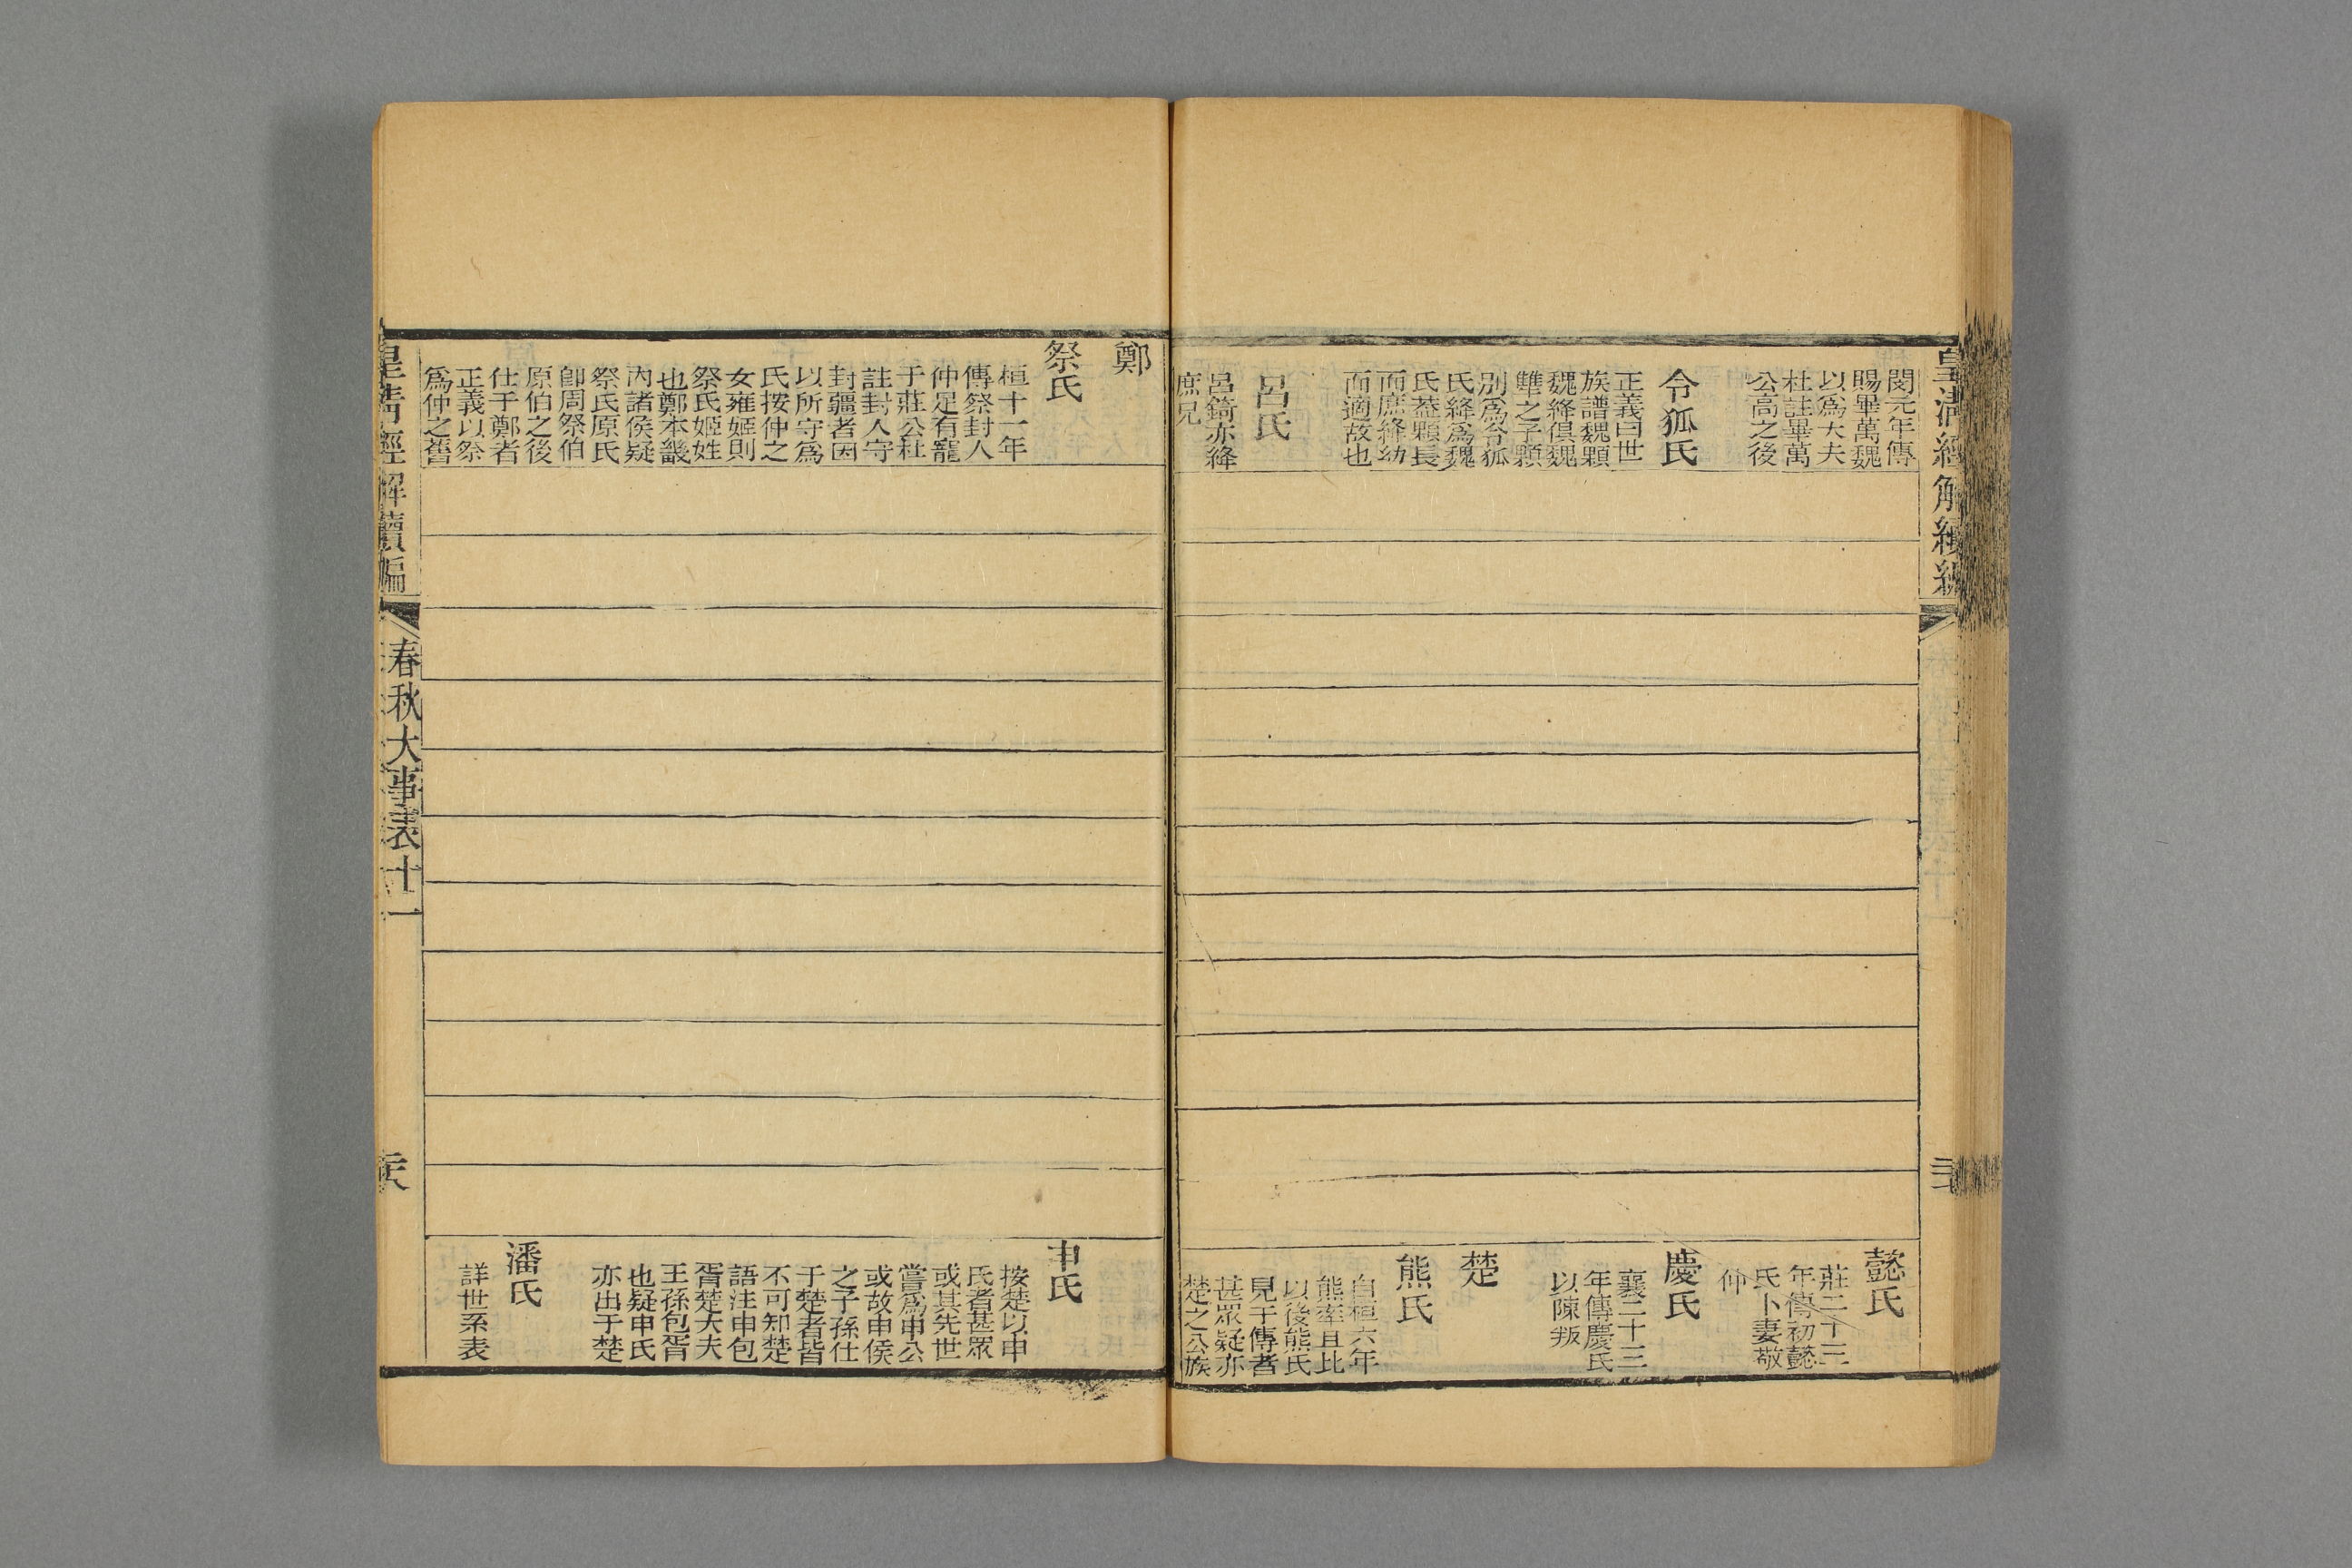 皇清經解續編
閔元年傳
賜畢萬魏
以爲大夫
杜註畢萬
公高之後
令狐氏
正義曰世
族譜魏顆
魏絳俱魏
犨之子顆
別爲令狐
氏絳爲魏
氏葢顆長
而庶絳幼
而適故也
呂氏
呂錡亦絳
庶兄
懿氏
莊二十二
年傳初懿
氏卜妻敬
仲
慶氏
襄二十三
年傳慶氏
以陳叛
楚
熊氏
自桓六年
熊率且比
以後熊氏
見于傳者
甚眾疑亦
楚之公族
鄭
祭氏
桓十一年
傳祭封人
仲足有寵
于莊公杜
註封人守
封疆者因
以所守爲
氏按仲之
女雍姬則
祭氏姬姓
也鄭本畿
內諸侯疑
祭氏原氏
卽周祭伯
原伯之後
仕于鄭者
正義以祭
爲仲之舊
申氏
按楚以申
氏者甚眾
或其先世
嘗爲申公
或故申侯
之子孫仕
于楚者皆
不可知楚
語注申包
胥楚大夫
王孫包胥
也疑申氏
亦出于楚
潘氏
詳世系表
皇清經解續編
春秋大事表十一